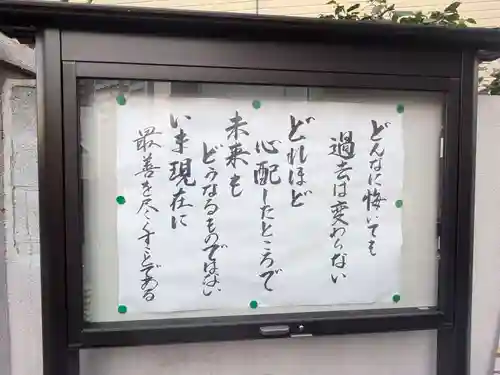 どんなに悔いても
過去は変わらない
どれほど
心配したところで
未来も
どうなるものではない
いま現在に
最善を尽くすことである